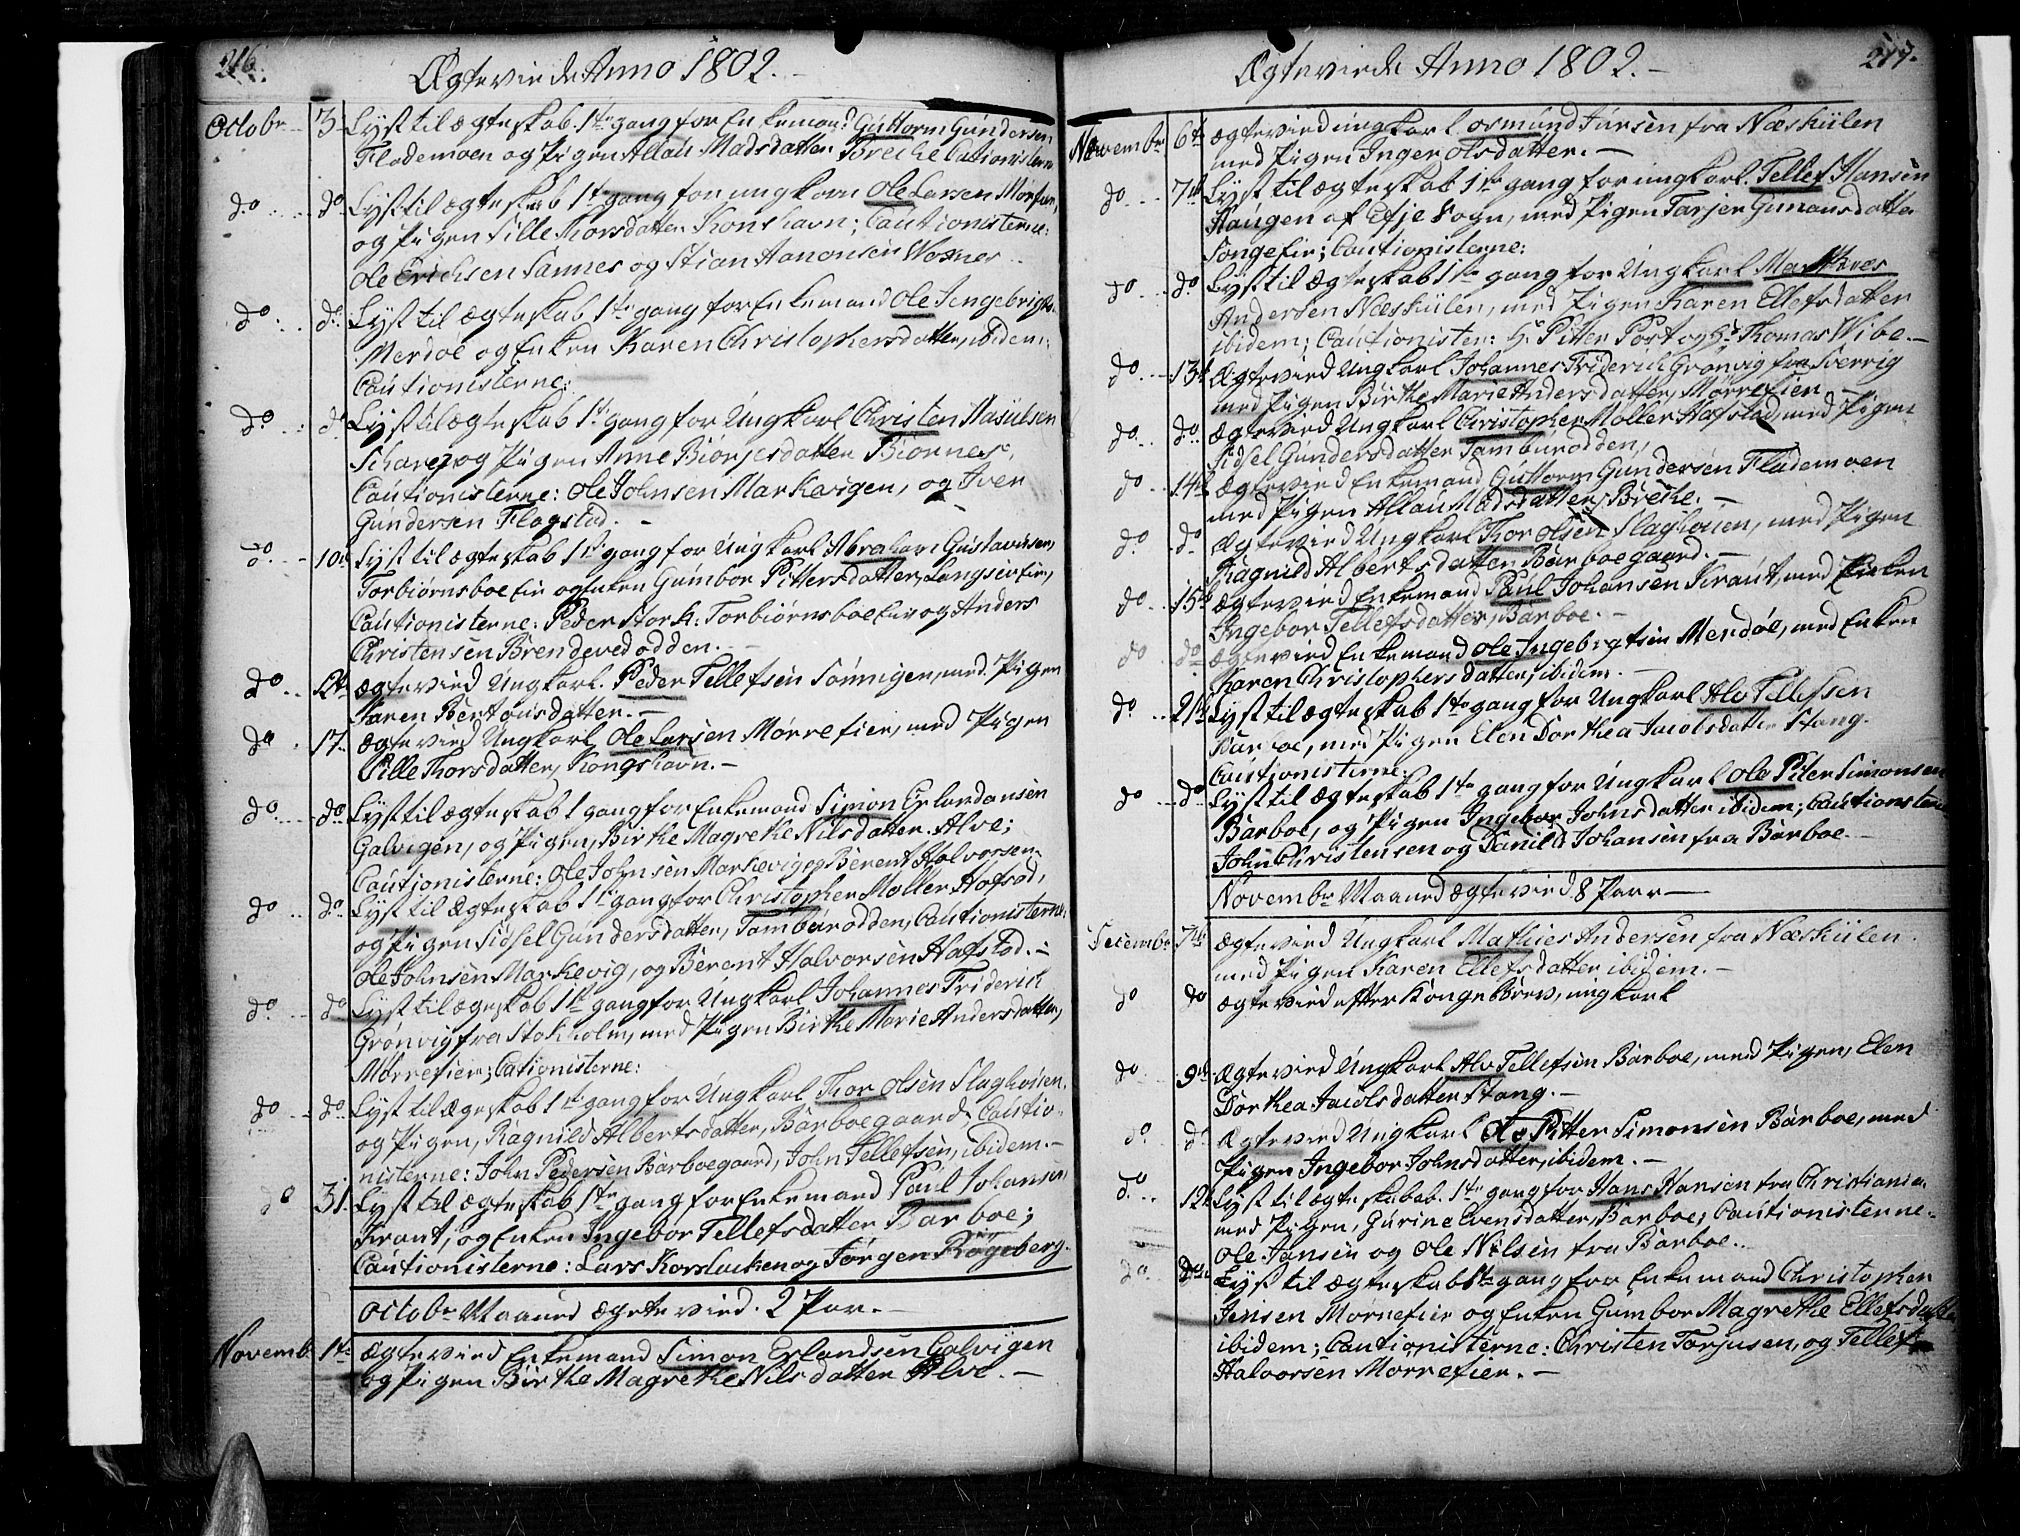 216.
Ægteviede Anno 1802.
Octobr 3 Lyst til ægteskab 1te gang for Enkemand Guttorm Gundersen
Flødemoen og Pigen Allau Madsdatter Breche Cautionisterne
do do Lyst til ægteskab 1te gang for ungkarl Ole Larsen Mörfier,
og Pigen Sille Thorsdatter Konshavn; Cautionisterne:
Ole Erichsen Sannes og Stian Aanonsen Woxnes
do do Lyst til ægteskab 1te gang for Enkemand Ole Jngebrigts.
Merdöe og Enken Karen Christophersdatter, ibidem:
Cautionisterne:
do do Lyst til ægteskab 1te gang for Ungkarl Christen Nasulsen
og Pigen Anne Biörjesdatter Biornes,
Cautionisterne: Ole Johnsen Markevigen, og Iver
Gundersen Flagstad. -
do 10de Lyst til ægteskab 1te gang for Ungkarl Abraham Gustavusen,
Torbiörnsboe Eie og Enken Gumbor Pittersdatter, Langsævfie,
Cautionisterne: Peder Stork: Torbiörnsboe Eie og Anders
Christensen Brendeved odden. -
do 12te ægteviet Ungkarl. Peder Tellefsen Sömnigen, med Pigen
Karen Bentousdatter. -
do 17. ægteviet Ungkarl Ole Larsen Mörrefier, med Pigen
Sille Thorsdatter, Kongshavn. -
do do Lyst til ægteskab 1 gang for Enkemand Simon Erlandsen
Galvigen, og Pigen, Birthe Magrethe Nilsdatter Alve;
Cautionisterne: Ole Johnsen Markevig og Berent Halvorsen
do do Lyst til ægteskab 1te gang for Christopher Møller Hafstad,
og Pigen Sidsel Gundersdatter, Tamburodden, Cautionisterne:
Ole Johnsen Markevig, og Berent Halvorsen Hafstad. -
do do Lyst til ægteskab 1te gang for Ungkarl Johannes Friderich
Grönvig fra Stokholm, med Pigen Birthe Marie Andersdatter,
Mörrefier; Cationisterne:
do do Lyst til ægteskab 1te gang for Ungkarl Thor Olsen Slaghöien,
og Pigen, Ragnild Albertsdatter, Barboegaard, Cautio-
nisterne: John Pedersen Barboegaard, John Tellefsen, ibidem. -
do 31. Lyst til ægteskab 1te gang for Enkemand Paul Johansen
Kraut, og Enken Ingebor Tellefsdatter Barboe;
Cautionisterne: Lars Korslucken og Jörgen Rögeberg.
Octobr Maaned ægteviet. 2 Par. -
Novembr 1te ægteviet Enkemand Simon Erlandsen Galvigen
og Pigen Birthe Magrethe Nilsdatter Alve. -
217.
Ægteviede Anno 1802. -
November 6te ægteviet ungkarl Osmund Jursen fra Næskiilen
med Pigen Inger Olsdatter. -
do 7de Lyst til ægteskab 1te gang for ungkarl. Tellef Hansen
Haugen af Efje Sogn, med Pigen Tarjer Gunansdatter
Songefie; Cautionisterne:
do do Lyst til ægteskab 1te gang for Ungkarl Matthies
Andersen Næskiilen, med Pigen Karen Ellefsdatter
ibidem; Cautionister: Hr Pitter Post og Hr Thomas Wibe. -
do 13de Ægteviet Ungkarl Johannes Friderich Grönvig fra Sverrig
med Pigen Birthe Marie Andersdatter, Mörrefien
do do Ægteviet Ungkarl Christopher Møller Hafstad, med Pigen
Sidsel Gundersdatter Tamburodden,
do 14de Ægteviet Enkemand Guttorm Gundersen Flödemoen
med Pigen Allau Madsdatter, Breche. -
do do Ægteviet Ungkarl Thor Olsen Slaghöien, med Pigen
Ragnild Albertsdatter Barboegaard. -
do 15de ægteviet Enkemand Paul Johansen Kraut, med Enken
Ingebor Tellefsdatter, Barboe. -
do do ægteviet Enkemand Ole Ingebrigtsen Merdöe, med Enken
Karen Christophersdatter, ibidem. -
do 21de Lyst til ægteskab 1te gang for Ungkarl Alv Tellefsen
Barboe, med Pigen Elen Dorthea Jacobsdatter Stang.
Cautionisterne
do do Lyst til ægteskab 1te gang for Ungkarl Ole Piter Simonsen
Barboe, og Pigen Ingebor Johnsdatter ibidem; Cautionisterne
John Christensen og Danild Johansen fra Barboe. -
Novembr Maaned ægteviet 8 Parr -
Decembr 7de ægteviet Ungkarl Mathies Andersen fra Næskiilen
med Pigen Karen Ellefsdatter ibidem. -
do do ægteviet efter Kongebrev, ungkarl
do 9de Ægteviet Ungkarl Alv Tellefsen Barboe, med Pigen, Elen
Dorthea Jacobsdatter Stang. -
do do Ægteviet Ungkarl Ole Pitter Simonsen Barboe, med
Pigen Ingebor Johnsdatter, ibidem. -
do 12te Lyst til ægteskabeb. 1te gang for Hans Hansen fra Christiania
med Pigen, Gurine Evensdatter, Barboe; Cautionisterne.
Ole Jansen og Ole Nilsen fra Barboe.
do do Lyst til ægteskab 1te gang for Enkemand Christophen
Jensen Mornefier og Enken Gumbor Magrethe Ellefsdatter
ibidem; Cautionisterne: Christen Torjusen, og Tellef
Halvorsen Morrefier. -